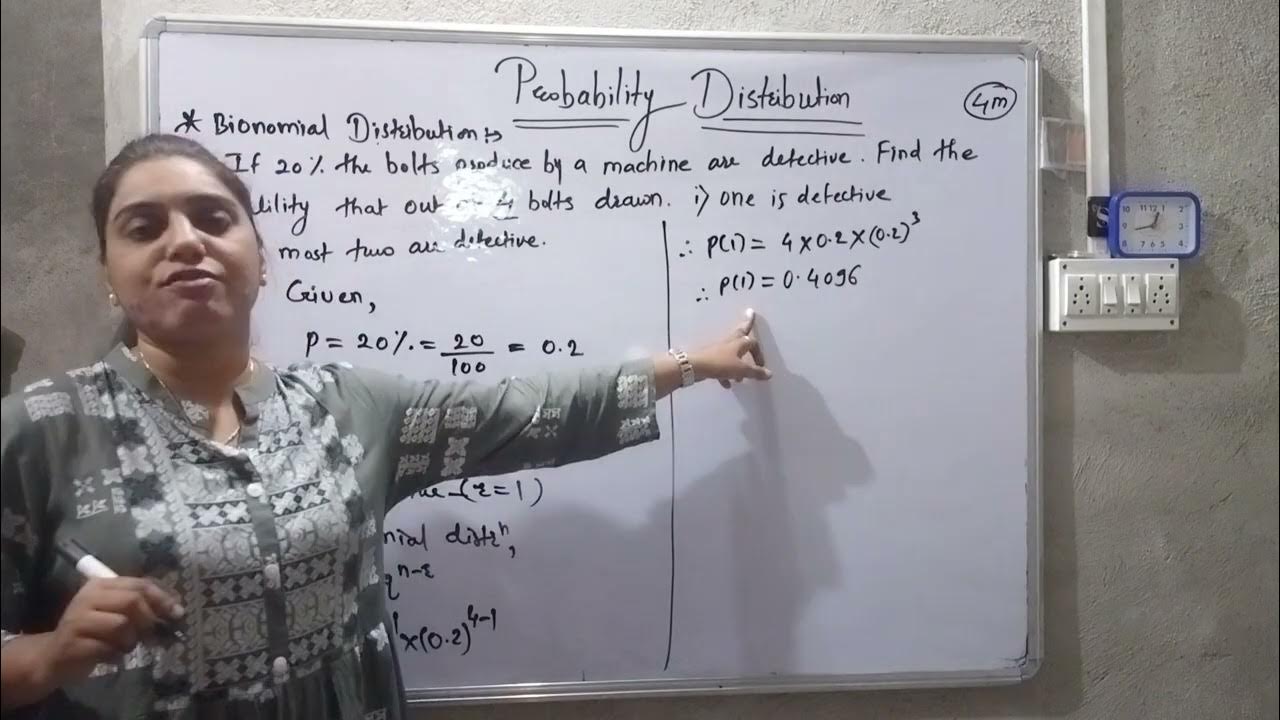 Probability Distribution
4m
* Bionomial Distribution :-
If 20% the bolts produce by a machine are defective. Find the
bility that out 4 bolts drawn. i) one is defective
most two are defective.
Given,
P = 20% = 20/100 = 0.2
(r=1)
nial distrⁿ,
qⁿ⁻ʳ
×(0.2)⁴⁻¹
∴ P(1) = 4×0.2×(0.2)³
∴ P(1) = 0.4096
10 11 12 1 2
9 3
8 7 6 5 4